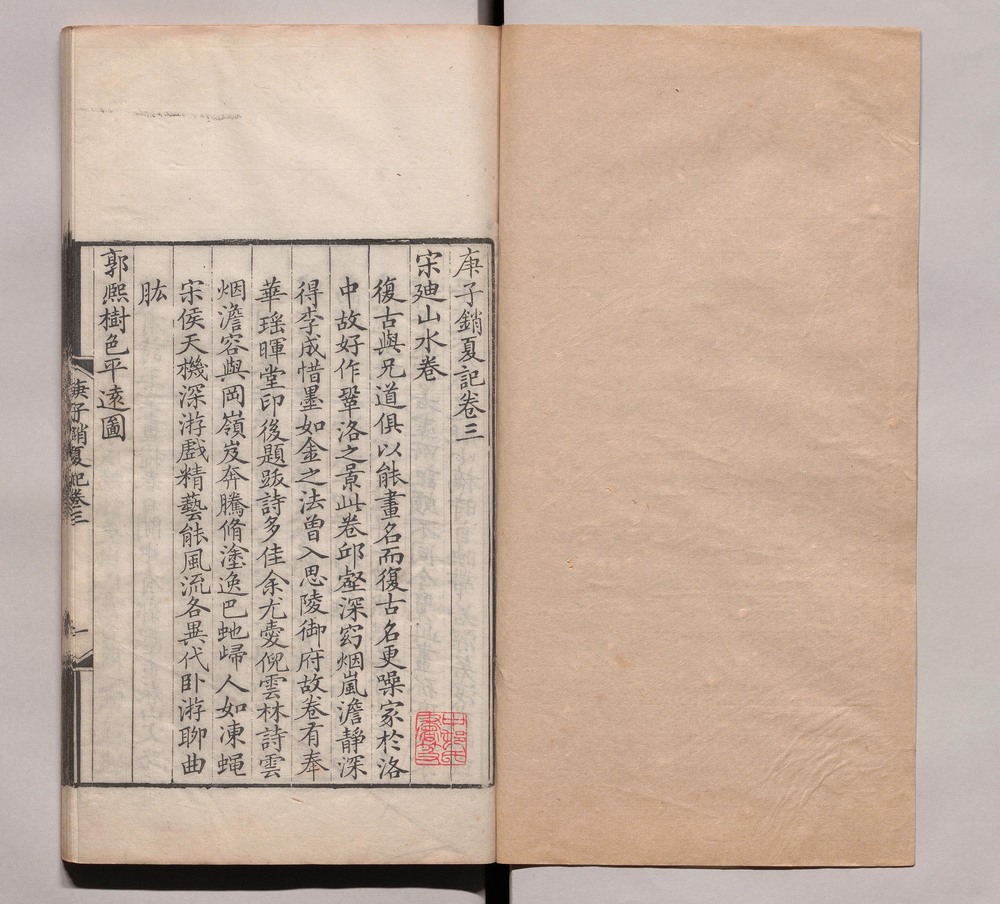 庚子銷夏記卷三
宋廸山水卷
復古與兄道俱以能畫名而復古名更噪家於洛
中故好作鞏洛之景此卷邱壑深窈烟嵐澹靜深
得李成惜墨如金之法曾入思陵御府故卷有奉
華瑶暉堂印後題䟦詩多佳余尤愛倪雲林詩雲
烟澹容與岡嶺岌奔騰脩塗逸巴虵歸人如凍蝇
宋侯天機深游戲精藝能風流各異代卧游聊曲
肱
郭熙樹色平遠圖
庚子銷夏記卷三
一